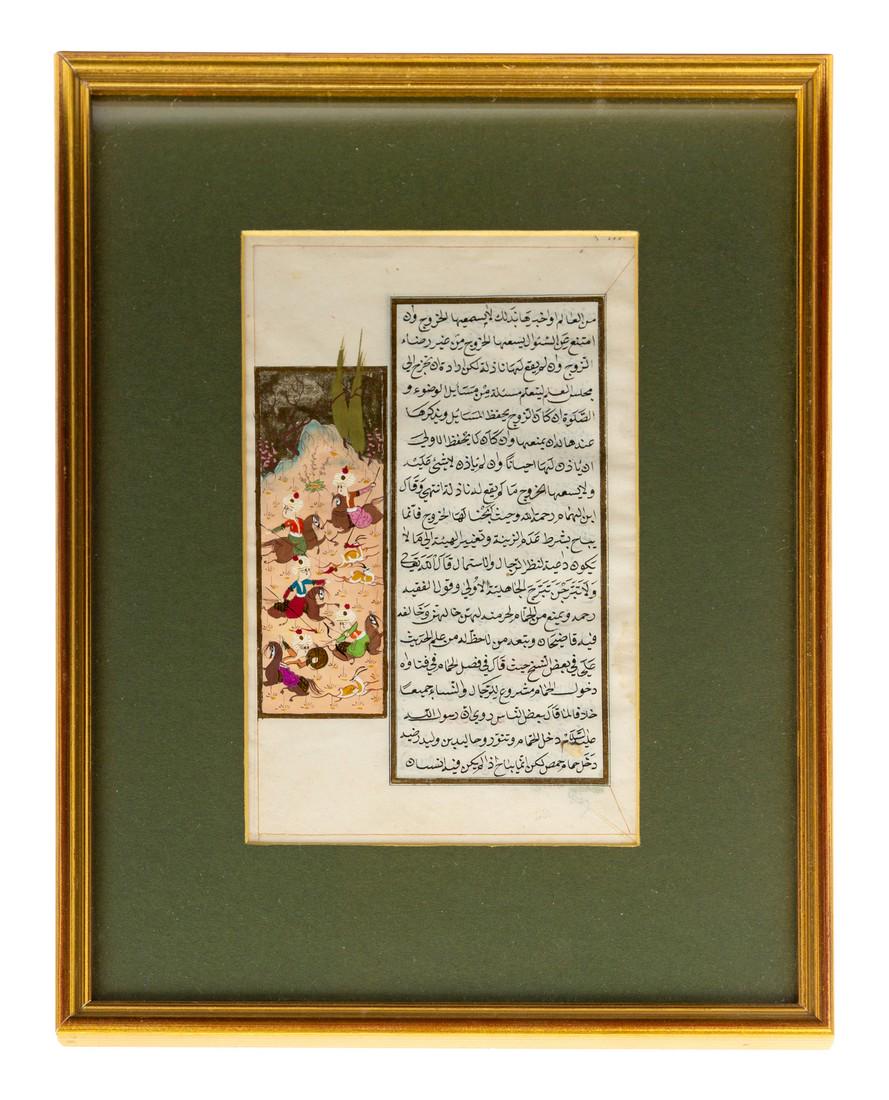 من العالم او اخبرها بذلك لا يسعها الخروج وان
امتنع من السئوال يسعها الخروج من غير رضاء
الزوج وان لم يقع لها نازلة لكن ارادة ان تخرج الى
مجلس العلم ليتعلم مسئلة من مسايل الوضوء و
الصلوة ان كان الزوج يحفظ المسايل ويذكرها
عندها له ان يمنعها وان كان لا يحفظ الاولى
ان ياذن لها احيانا وان لم ياذن لا شئ عليه
ولا يسعها الخروج ما لم يقع له نازلة انتهى وقال
ابن الهمام رحمه الله وحيث ابحنا لها الخروج فانما
يباح بشرط عدم الزينة وتغيير الهيئة الى ما لا
يكون داعية لنظر الرجال والاستمال قال الله تعالى
ولا تبرجن تبرج الجاهلية الاولى وقول الفقيه
رحمه ويمنع من الحمام خالفه
فيه قاضيخان ويتبعه من لاحظ له من علم الحديث
على في بعض النسخ حيث قال في فصل الحمام في فتاواه
دخول الحمام مشروع للرجال والنساء جميعا
خلافا لما قال بعض الناس روي ان رسول الله
عليه السلام دخل الحمام وتنور وخالد بن وليد رضيه
دخل حمام حمص لكن انما يباح اذا لم يكن فيه انسان